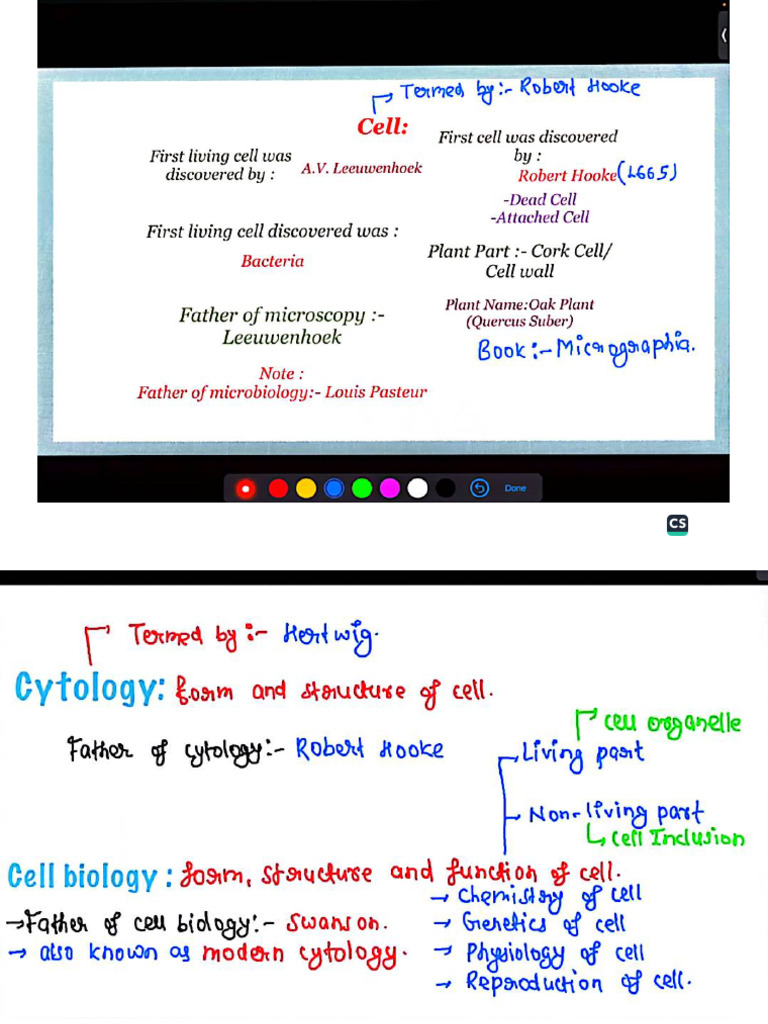 Termed by:- Robert Hooke
Cell:
First living cell was
discovered by :
A.V. Leeuwenhoek
First living cell discovered was :
Bacteria
Father of microscopy :-
Leeuwenhoek
Note :
Father of microbiology:- Louis Pasteur
First cell was discovered
by :
Robert Hooke (1665)
-Dead Cell
-Attached Cell
Plant Part :- Cork Cell/
Cell wall
Plant Name:Oak Plant
(Quercus Suber)
Book :- Micrographia.
Done
CS
Termed by :- Hertwig.
Cytology: form and structure of cell.
Father of cytology:- Robert Hooke
cell organelle
Living part
Non-living part
Cell Inclusion
Cell biology : form, structure and function of cell.
→ Father of cell biology:- Swanson.
→ also known as modern cytology.
→ Chemistry of cell
→ Genetics of cell
→ Physiology of cell
→ Reproduction of cell.